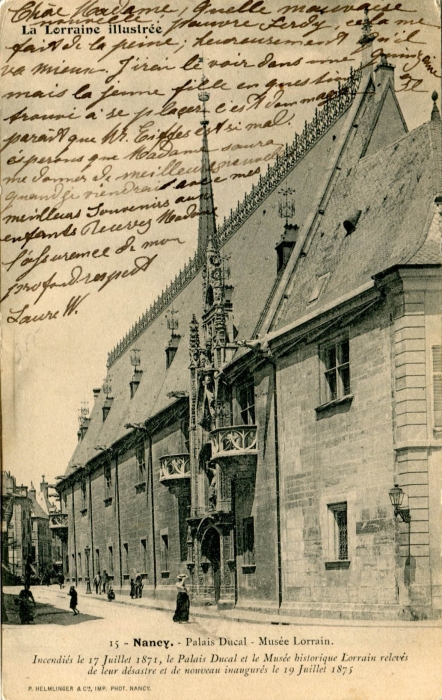 Chère Madame, Quelle mauvaise
nouvelle, pauvre Ferdy, cela me
La Lorraine illustrée
fait de la peine, heureusement qu'il
va mieux. J'irai le voir dans une quinzaine
mais la jeune fille en question
trouvé à se placer c'est dommage. Il
paraît que Mr. est si mal,
espérons que Madame saura
me donner de meilleures nouvelles
quand je viendrai avec mes
meilleurs Souvenirs aux
enfants Recevez Madame
l'assurance de mon
profond respect
Laure W.
15 - Nancy. - Palais Ducal - Musée Lorrain.
Incendiés le 17 Juillet 1871, le Palais Ducal et le Musée historique Lorrain relevés
de leur désastre et de nouveau inaugurés le 19 Juillet 1875
P. HELMLINGER & Cie, IMP. PHOT. NANCY.